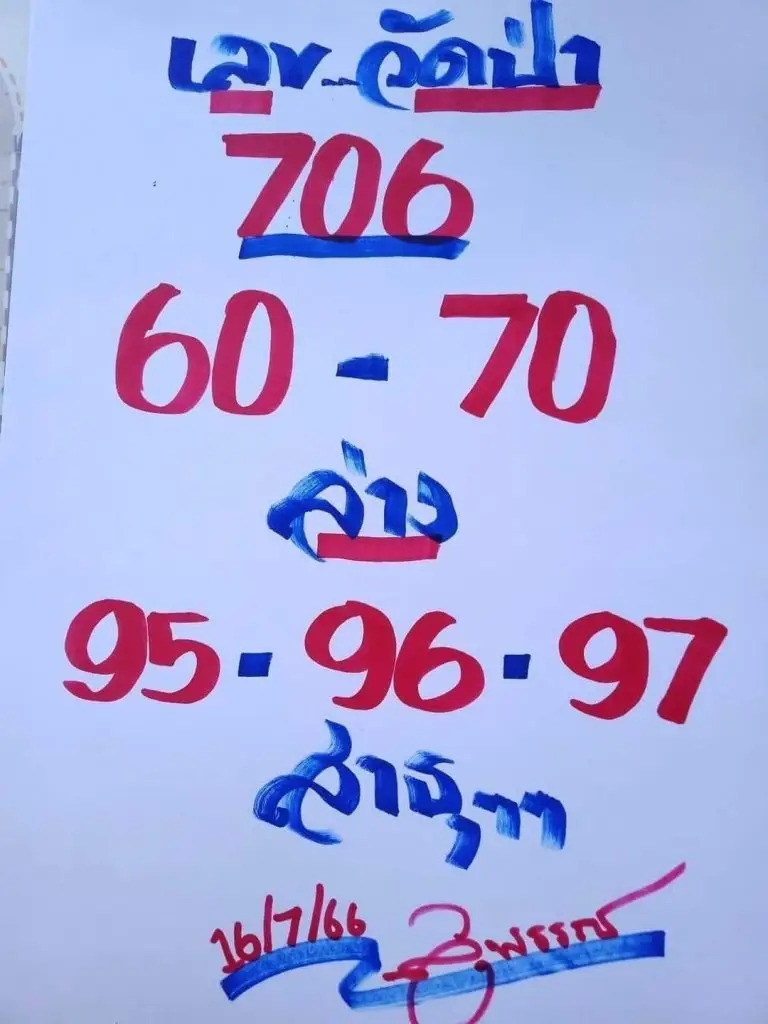 เลข..วัดป่า
706
60 - 70
ล่าง
95 - 96 - 97
สาธุๆๆ
16/7/66 สุพรรณ